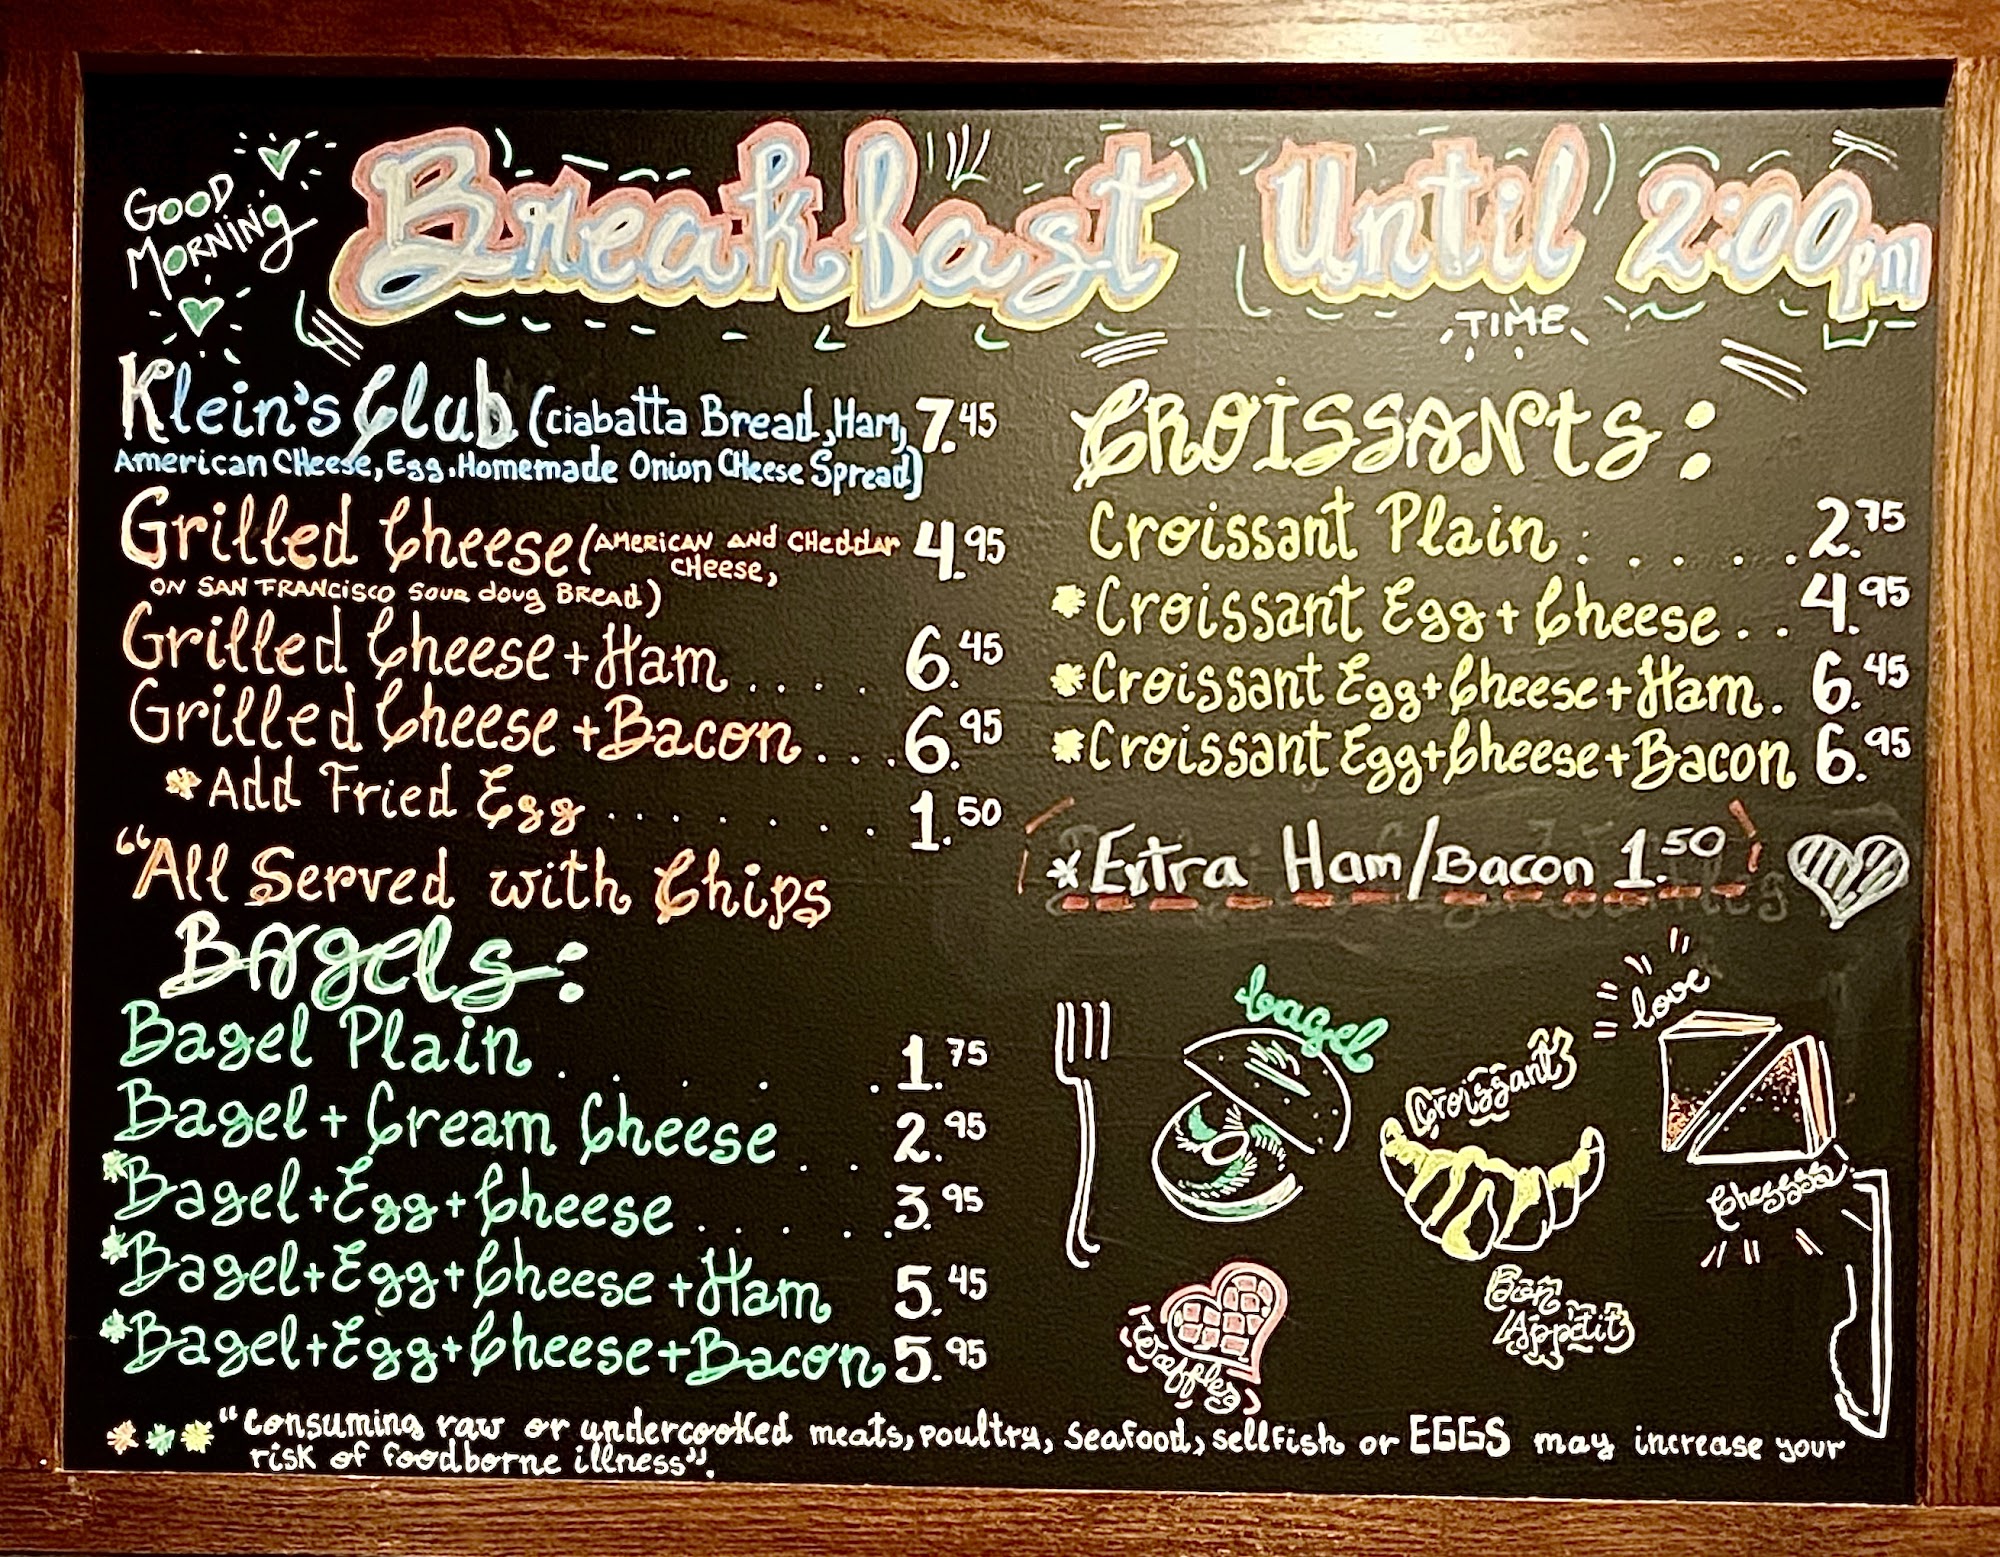 GOOD
MORNING
Breakfast Until 2:00 PM
TIME
Klein's Club (ciabatta Bread, Ham, 7.45
American CHeese, Egg. Homemade Onion CHeese Spread)
Grilled Cheese (AMERICAN AND CHeddar 4.95
CHeese,
ON SAN FRANCISCO Sour doug BREAD)
Grilled Cheese + Ham .... 6.45
Grilled Cheese + Bacon ... 6.95
*Add Fried Egg ....... 1.50
"All Served with Chips
BAgels:
Bagel Plain ..... 1.75
Bagel + Cream Cheese .. 2.95
*Bagel + Egg + Cheese .... 3.95
*Bagel + Egg + Cheese + Ham 5.45
*Bagel + Egg + Cheese + Bacon 5.95
CROISSANTS:
Croissant Plain ...... 2.75
*Croissant Egg + Cheese .. 4.95
*Croissant Egg + Cheese + Ham. 6.45
*Croissant Egg + Cheese + Bacon 6.95
*Extra Ham/Bacon 1.50
bagel
Croissant
love
Chessss
Waffles
Bon
Appetit
*** "Consuming raw or undercooked meats, poultry, Seafood, sellfish or EGGS may increase your
risk of foodborne illness".